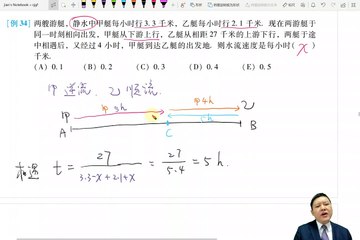 [例34] 两艘游艇，静水中甲艇每小时行3.3千米，乙艇每小时行2.1千米.现在两游艇于
同一时刻相向出发，甲艇从下游上行，乙艇从相距27千米的上游下行，两艇于途
中相遇后，又经过4小时，甲艇到达乙艇的出发地.则水流速度是每小时( x )
千米.
(A) 0.1 (B) 0.2 (C) 0.3 (D) 0.4 (E) 0.5
甲逆流，乙顺流.
甲 5h 甲4h 乙
5h
A C B
相遇 t = 27/(3.3-x+2.1+x) = 27/5.4 = 5h.